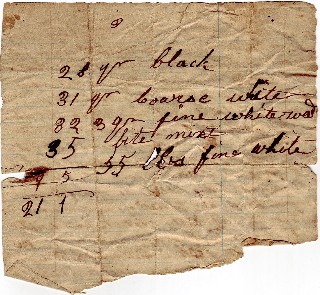 28 yr black
31 yr coarse wite
32 3 qr fine white wad
lite mixt
35
55 lbs fine while
5
21 1